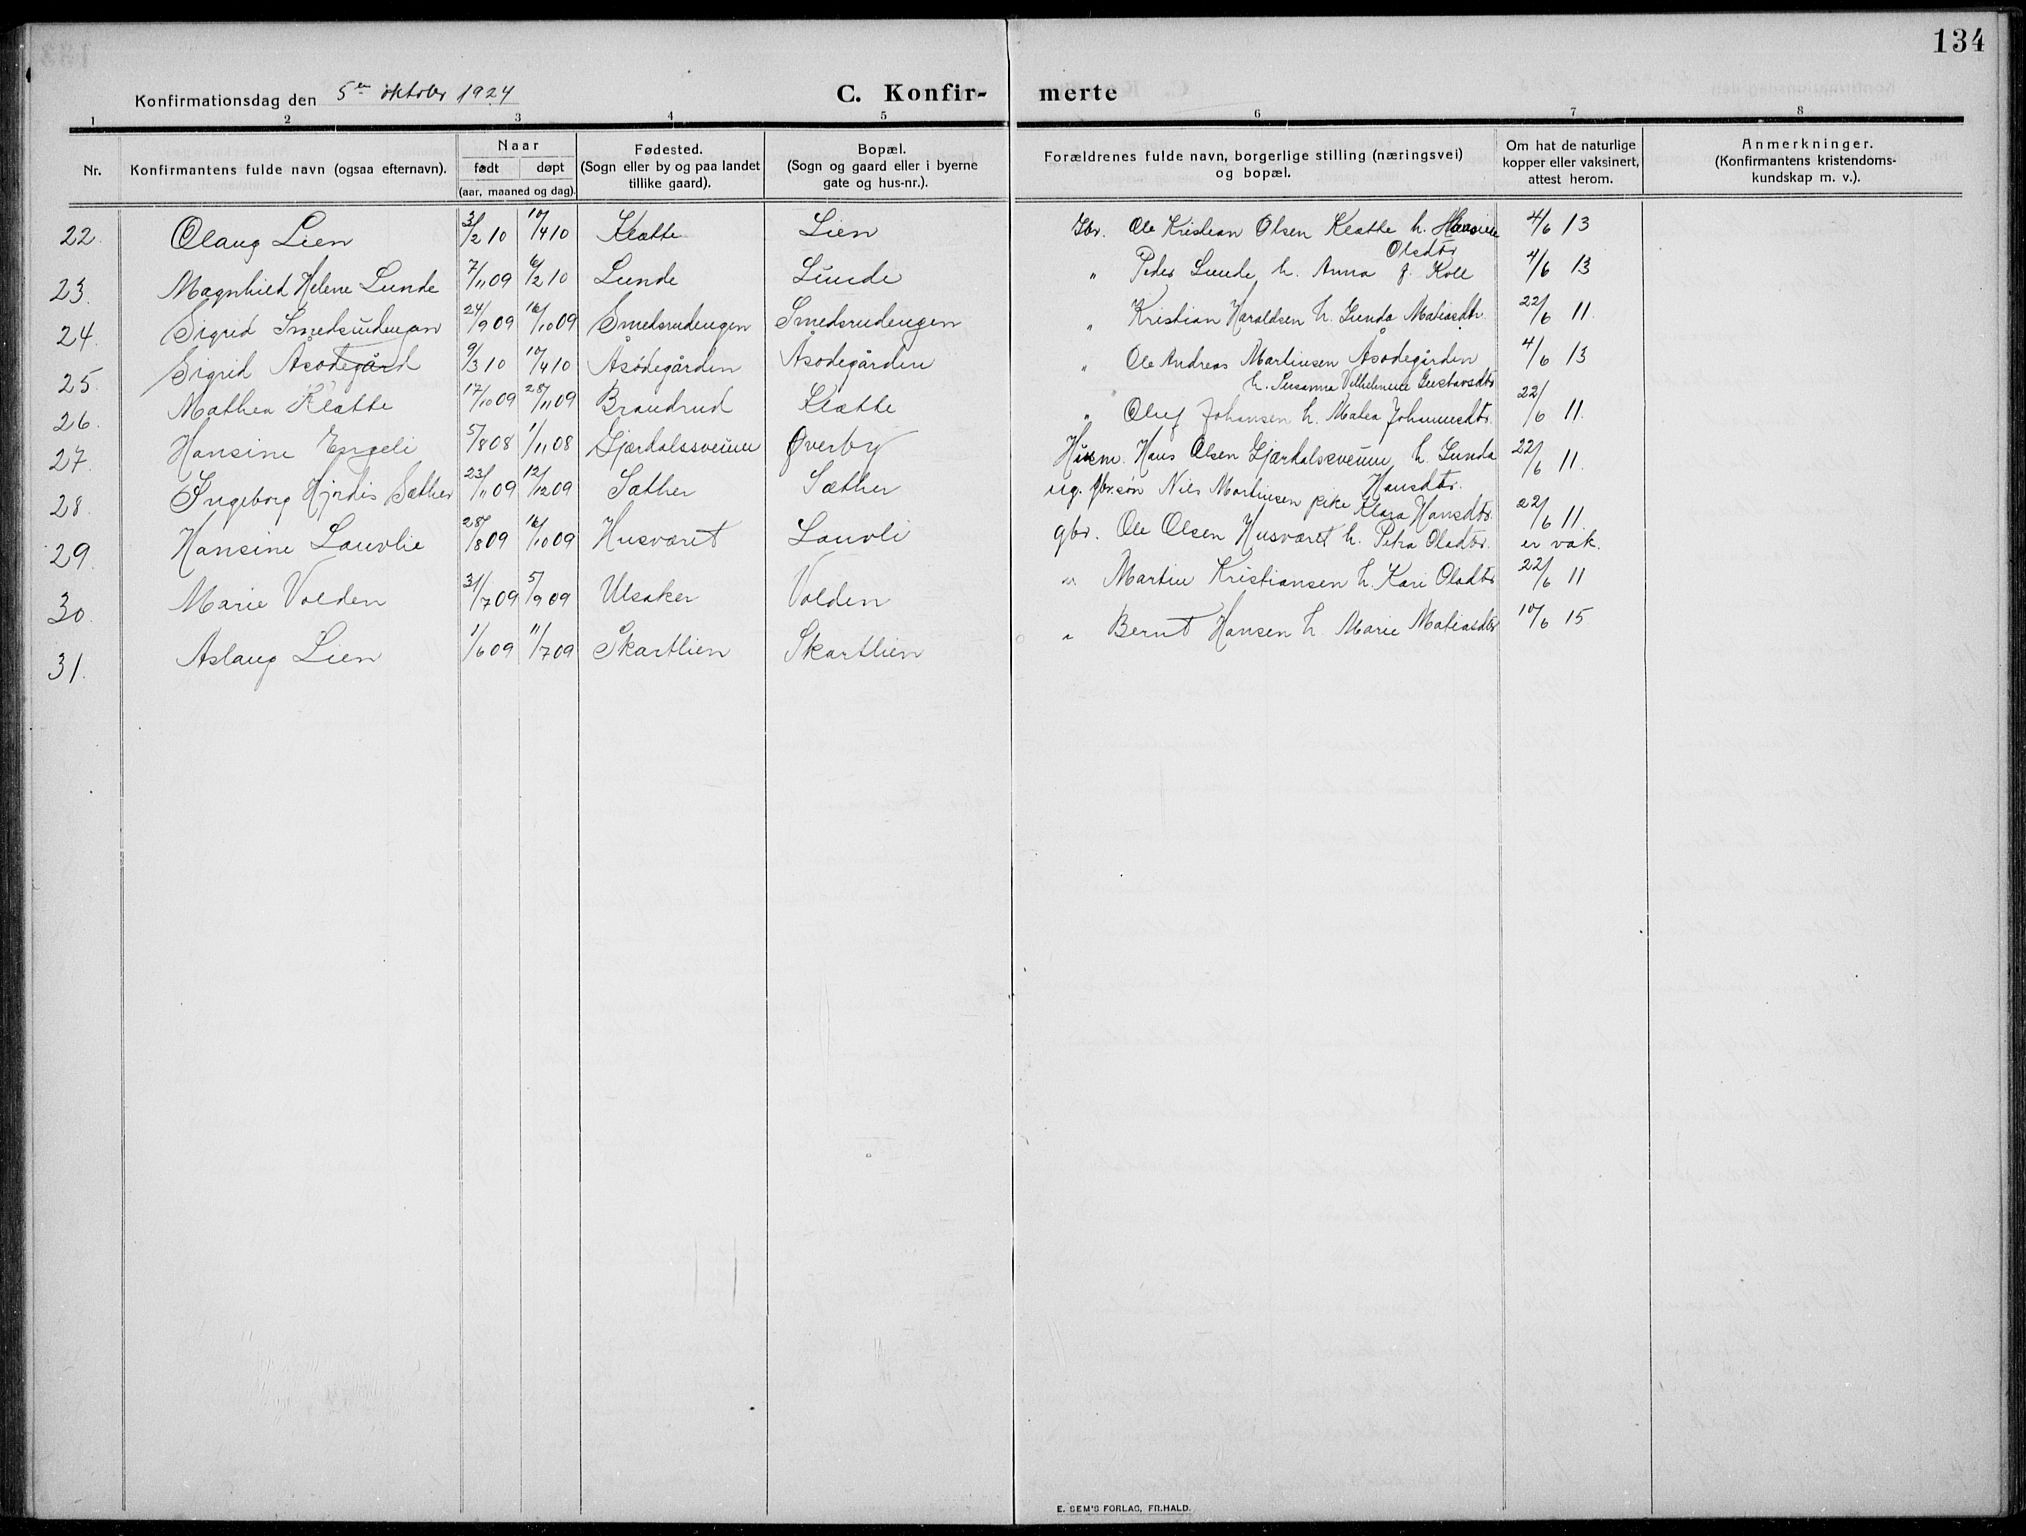 134
Konfirmationsdag den 5te oktober 1924
C. Konfir- merte
1 2 3 4 5 6 7 8
Nr.
Konfirmantens fulde navn (ogsaa efternavn).
Naar
født døpt
(aar, maaned og dag).
Fødested.
(Sogn eller by og paa landet
tillike gaard).
Bopæl.
(Sogn og gaard eller i byerne
gate og hus-nr.).
Forældrenes fulde navn, borgerlige stilling (næringsvei)
og bopæl.
Om hat de naturlige
kopper eller vaksinert,
attest herom.
Anmerkninger.
(Konfirmantens kristendoms-
kundskap m. v.).
22. Olaug Lien 3/2 10 10/4 10 Klætte Lien Gbr. Ole Kristian Olsen Klætte h. Olsdtr 4/6 13
23. Magnhild Helene Lunde 7/11 09 6/2 10 Lunde Lunde " Peder Lunde h. Anna f. Koll 4/6 13
24. Sigrid Smedsrudengen 24/9 09 16/10 09 Smedsrudengen Smedsrudengen " Kristian Haraldsen h. Gunda Matiasdtr. 22/6 11.
25. Sigrid Åsødegård 9/3 10 10/4 10 Åsødegården Åsødegården " Ole Andreas Martinsen Åsødegården 4/6 13
h. Susanna Vilhelmine Gustavsdtr
26. Mathea Klætte 17/10 09 28/11 09 Brandrud Klætte " Oluf Johansen h. Matea Johannesdtr. 22/6 11.
27. Hansine Engeli 5/8 08 1/11 08 Gjærdalssveeen Øverby Husm. Hans Olsen Gjærdalsveeen h. Gunda Hansdtr. 22/6 11.
28. Ingeborg Hjørdis Sæther 23/11 09 12/12 09 Sæther Sæther ug. gbr.søn Nils Martinsen pike Klara Hansdtr. 22/6 11.
29. Hansine Lauvlie 28/8 09 16/10 09 Husværet Lauvli gbr. Ole Olsen Husværet h. Petra Olsdtr. er vak.
30. Marie Volden 31/7 09 5/9 09 Ulsaker Volden " Martin Kristiansen h. Kari Olsdtr 22/6 11
31. Aslaug Lien 1/6 09 11/7 09 Skartlien Skartlien " Bernt Hansen h. Marie Matiasdtr 10/6 15
E. SEM'S FORLAG, FR.HALD.